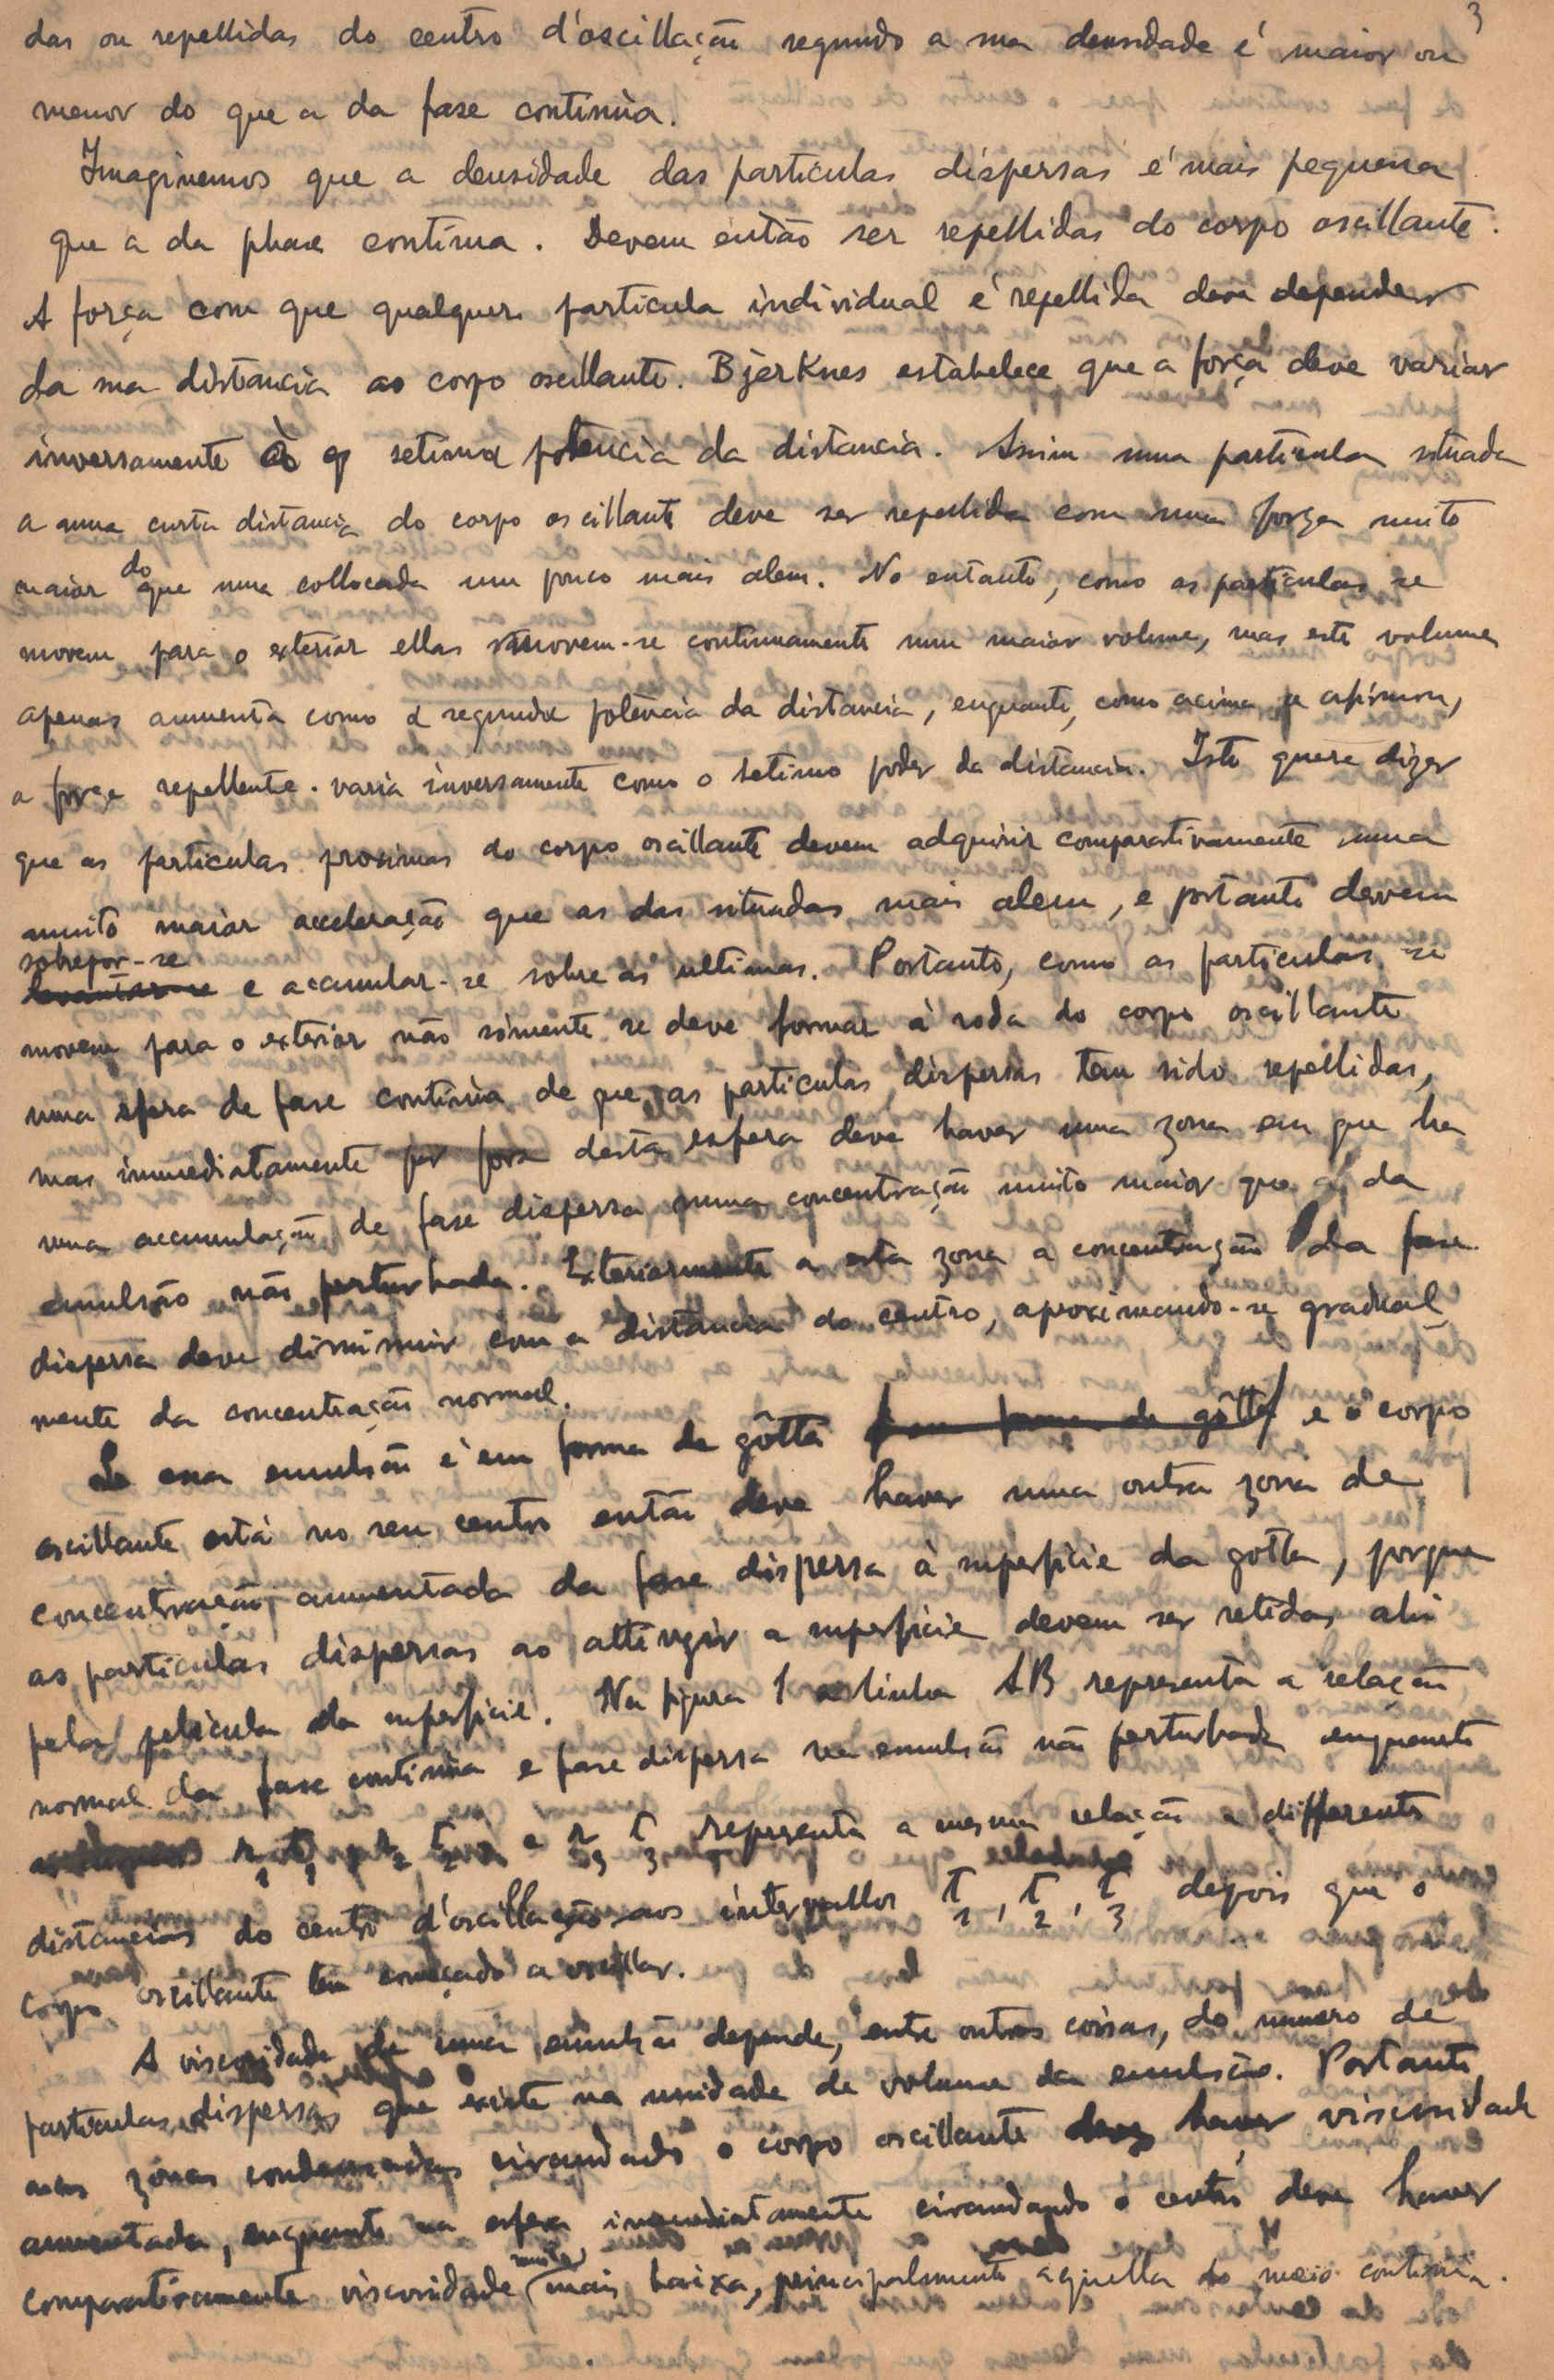 3
das ou repellidas do centro d'oscillação segundo a sua densidade é maior ou
menor do que a da fase continua.
Imaginemos que a densidade das particulas dispersas é mais pequena
que a da phase continua. Devem então ser repellidas do corpo oscillante.
A força com que qualquer particula individual é repellida deve depender
da sua distancia ao corpo oscillante. Bjerknes estabelece que a força deve variar
inversamente à setima potencia da distancia. Assim uma particula situada
a uma curta distancia do corpo oscillante deve ser repellida com uma força muito
maior do que uma collocada um pouco mais alem. No entanto, como as particulas se
movem para o exterior ellas movem-se continuamente num maior volume, mas este volume
apenas aumenta como a segunda potencia da distancia, enquanto, como acima se afirmou,
a força repellente varia inversamente como o setimo poder da distancia. Isto quere dizer
que as particulas proximas do corpo oscillante devem adquirir comparativamente uma
muito maior acceleração que as das situadas mais alem, e portanto devem
sobrepor-se e accumular-se sobre as ultimas. Portanto, como as particulas se
movem para o exterior não sómente se deve formar à roda do corpo oscillante
uma esfera de fase continua de que as particulas dispersas tem sido repellidas,
mas immediatamente por fora desta esfera deve haver uma zona em que ha
uma accumulação de fase dispersa numa concentração muito maior que a da
emulsão não perturbada. Exteriormente a esta zona a concentração da fase
dispersa deve diminuir com a distancia do centro, aproximando-se gradual
mente da concentração normal.
Se essa emulsão é em forma de gôtta e o corpo
oscillante está no seu centro então deve haver uma outra zona de
concentração aumentada da fase dispersa à superficie da gotta, porque
as particulas dispersas ao attingir a superficie devem ser retidas ahi
pela pelicula da superficie. Na figura 1 a linha AB representa a relação
normal da fase continua e fase dispersa na emulsão não perturbada enquanto
r1 t1, r2 t2 e r3 t3 representa a mesma relação a differentes
distancias do centro d'oscillação aos intervallos t1, t2, t3 depois que o
corpo oscillante tem começado a oscillar.
A viscosidade de uma emulsão depende, entre outras coisas, do numero de
particulas dispersas que existe na unidade de volume da emulsão. Portanto
nas zonas condensadas circundado o corpo oscillante deve haver viscosidade
aumentada, enquanto na esfera immediatamente circundando o centro deve haver
comparativamente viscosidade muito mais baixa, principalmente aquella do meio continuo.